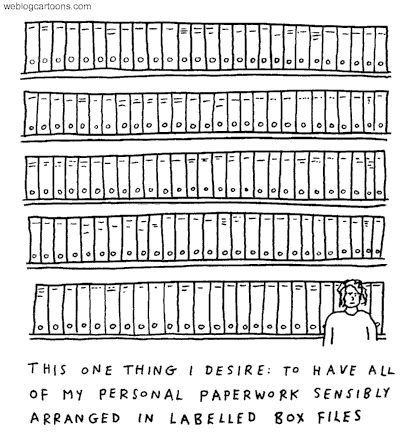 weblogcartoons.com
THIS ONE THING I DESIRE: TO HAVE ALL
OF MY PERSONAL PAPERWORK SENSIBLY
ARRANGED IN LABELLED BOX FILES